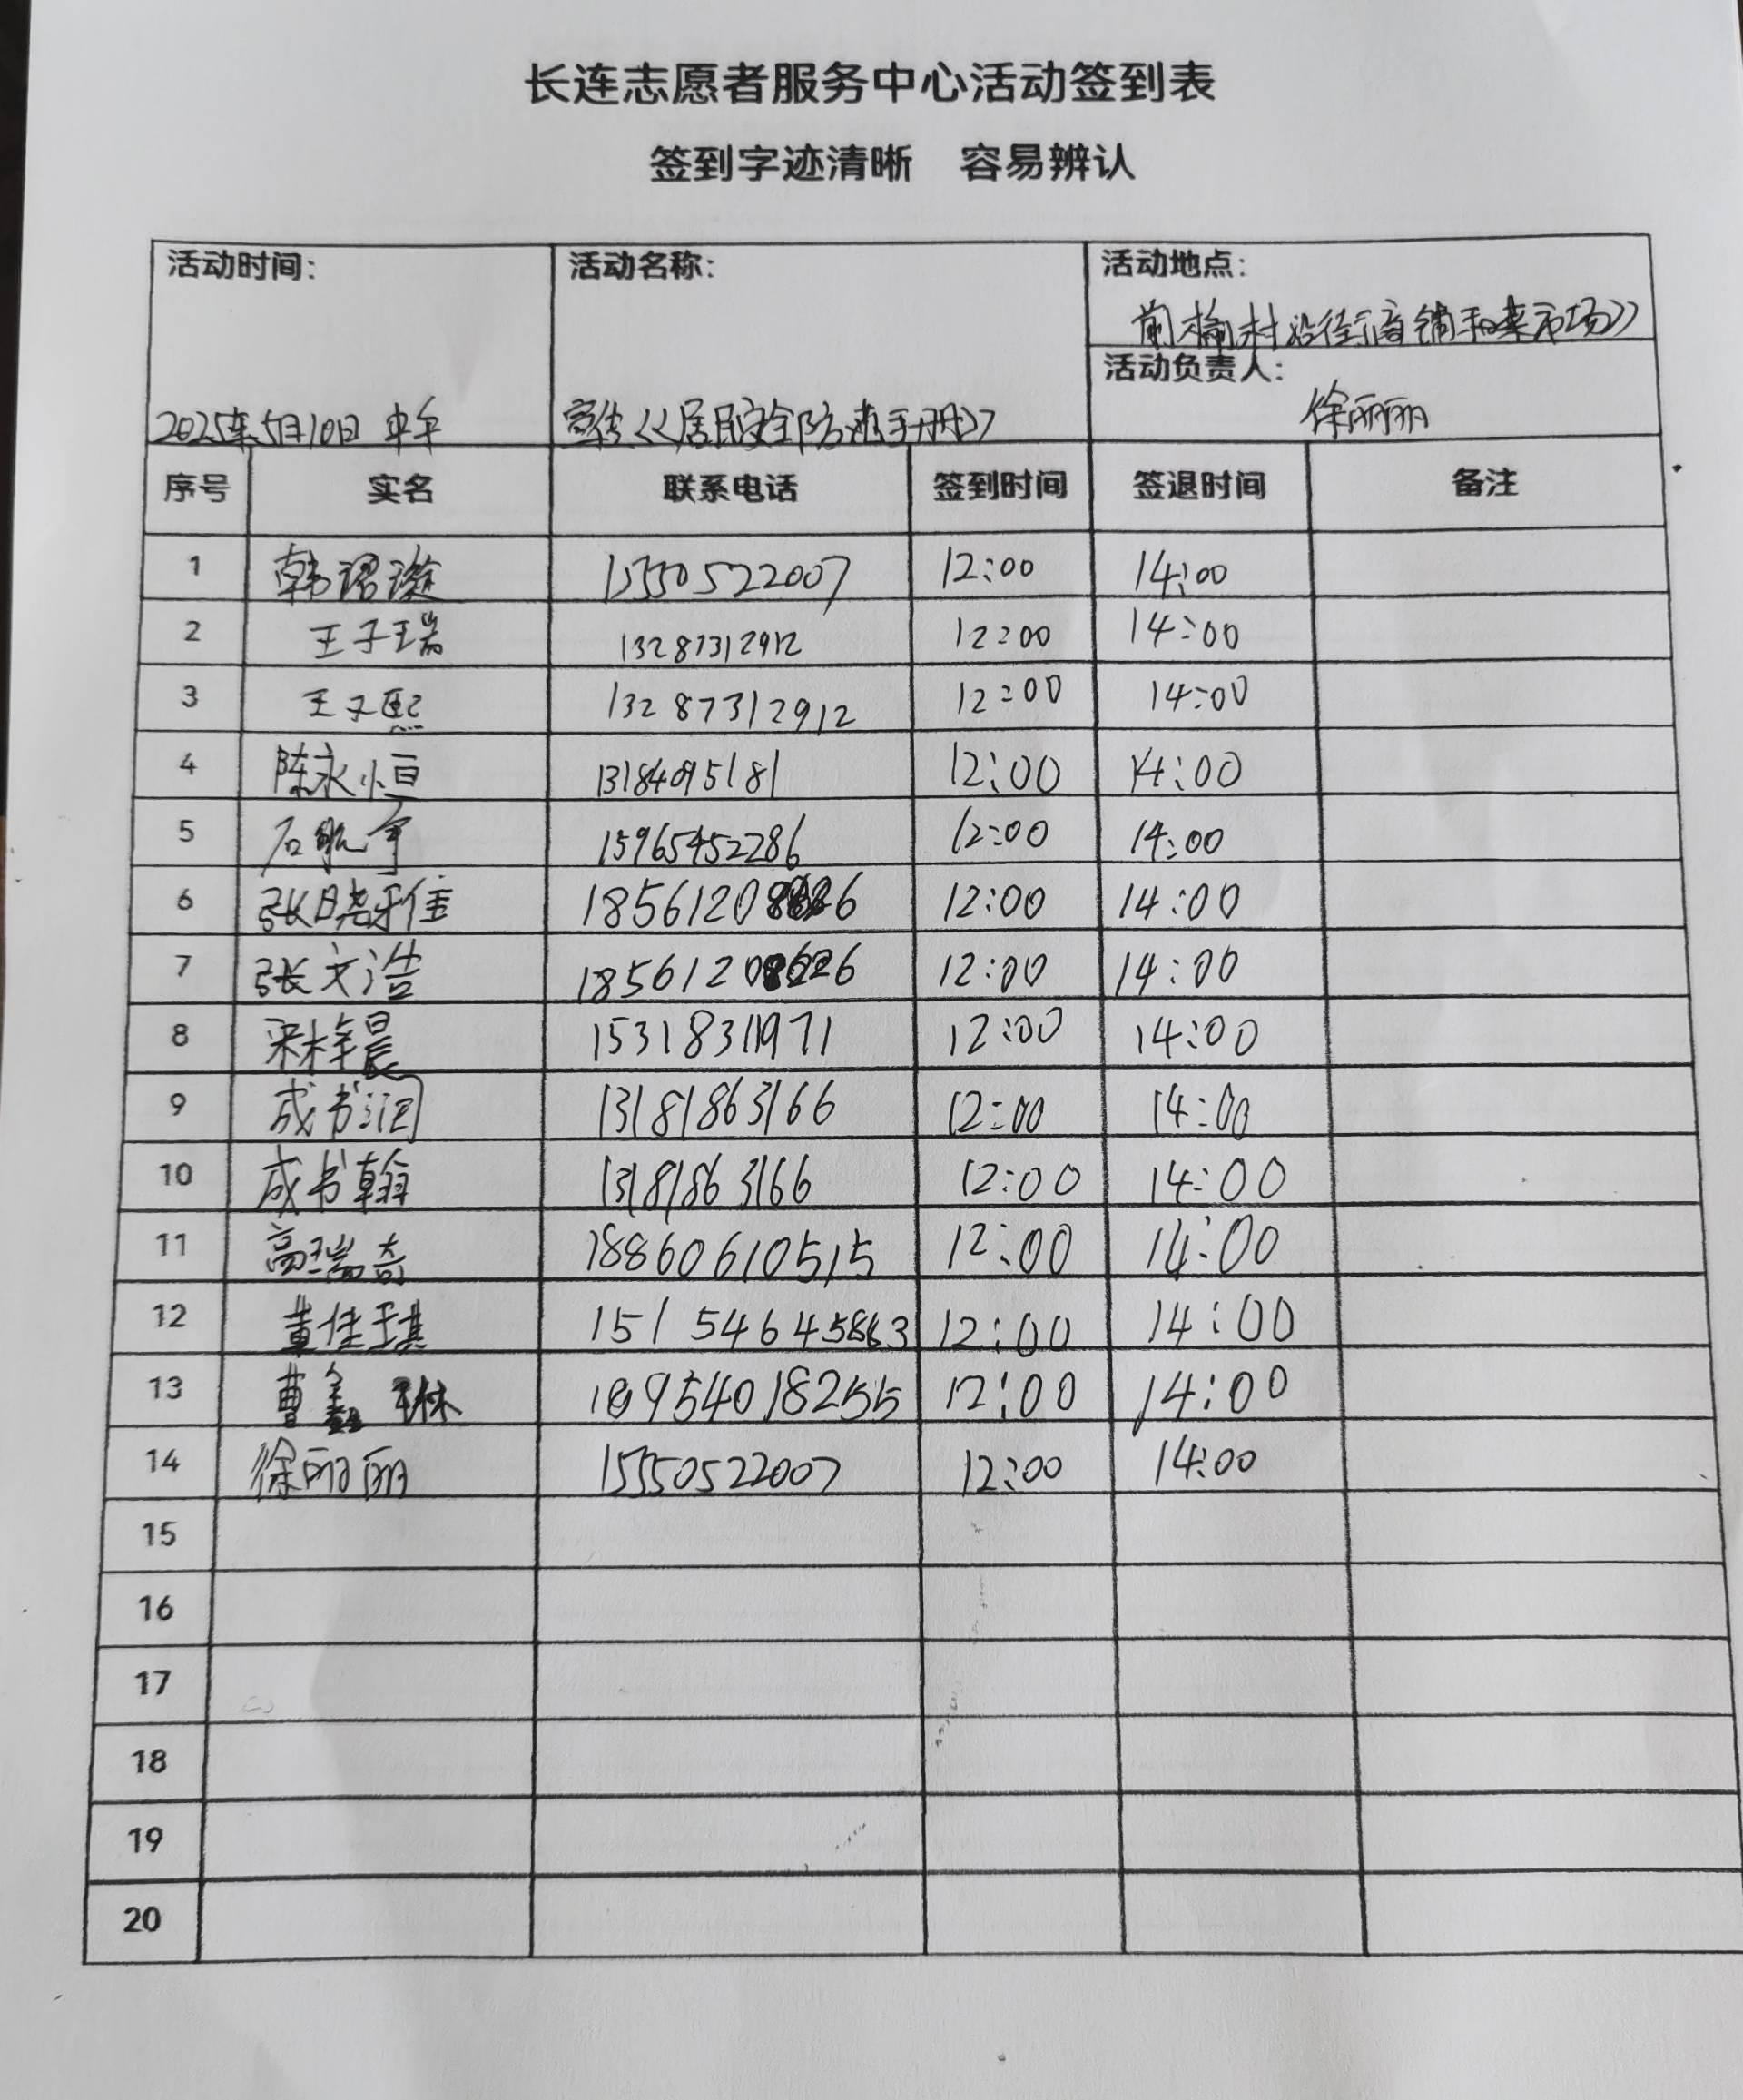 长连志愿者服务中心活动签到表
签到字迹清晰 容易辨认
活动时间: 活动名称: 活动地点:
前榆村沿街商铺和菜市场》
活动负责人:
徐丽丽
2025年5月10日 中午 宣传《居民安全防范手册》
序号 实名 联系电话 签到时间 签退时间 备注
1 韩 15550522007 12:00 14:00
2 王子瑞 13287312912 12:00 14:00
3 王子熙 13287312912 12:00 14:00
4 陈永恒 13184095181 12:00 14:00
5 石航宇 15965452286 12:00 14:00
6 张晓乐佳 12:00 14:00
7 张文浩 18561208626 12:00 14:00
8 宋梓晨 15318311971 12:00 14:00
9 成书润 13181863166 12:00 14:00
10 成书翰 13181863166 12:00 14:00
11 高瑞奇 18860610515 12:00 14:00
12 董佳琪 12:00 14:00
13 曹 琳 18954018255 12:00 14:00
14 徐丽丽 15550522007 12:00 14:00
15
16
17
18
19
20